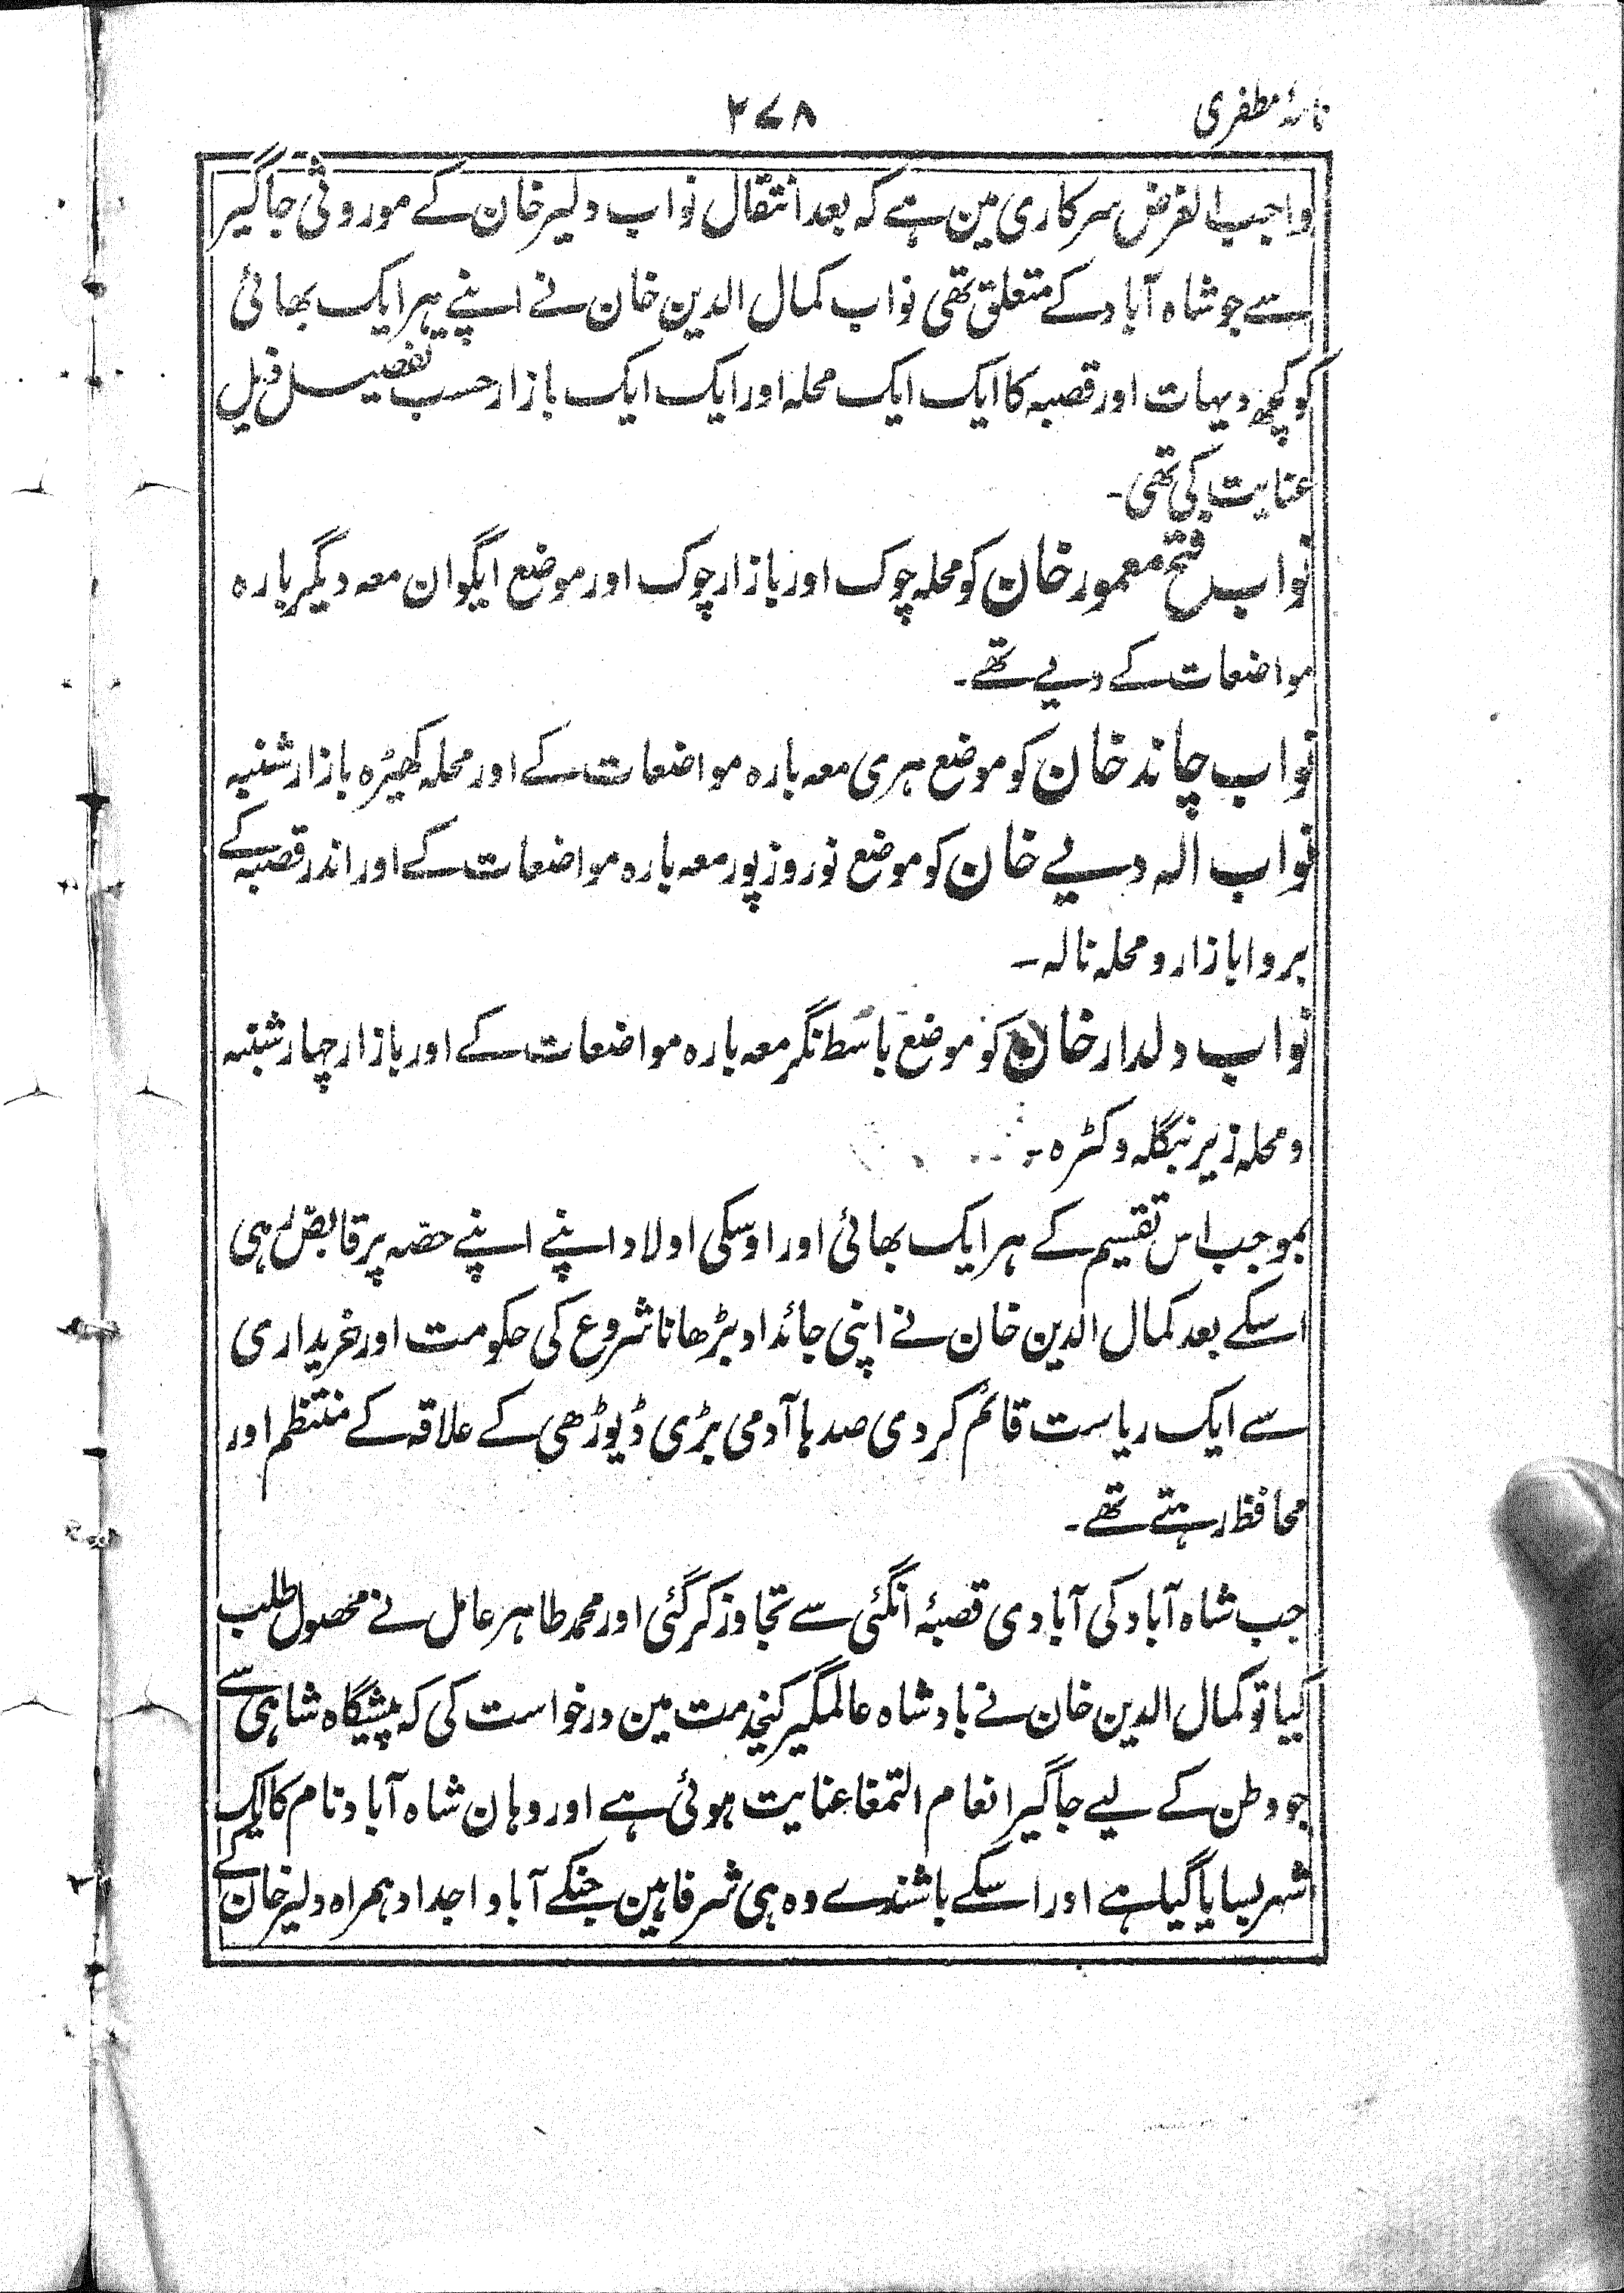 نامۂ مظفری
۲۷۸
واجب الفرض سرکاری مین ہے کہ بعد انتقال نواب دلیر خان کے موروثی جاگیر
سے جو شاہ آباد کے متعلق تھی نواب کمال الدین خان نے اپنے ہر ایک بھائی
کو کچھ دیہات اور قصبہ کا ایک ایک محلہ اور ایک ایک بازار حسب تفصیل ذیل
عنایت کی تھی۔
نواب فتح معمور خان کو محلہ چوک اور بازار چوک اور موضع ایگوان معہ دیگر بارہ
مواضعات کے دیے تھے۔
نواب چاند خان کو موضع ہری معہ بارہ مواضعات کے اور محلہ کھیڑہ بازار شنبہ
نواب الہ دیے خان کو موضع نوروز پور معہ بارہ مواضعات کے اور اندر قصبہ کے
بروا بازار و محلہ نالہ۔
نواب دلدار خان کو موضع باسط نگر معہ بارہ مواضعات کے اور بازار چہار شنبہ
و محلہ زیر بنگلہ و کٹرہ۔
بموجب اس تقسیم کے ہر ایک بھائی اور اوسکی اولاد اپنے اپنے حصّہ پر قابض رہی
اسکے بعد کمال الدین خان نے اپنی جائداد بڑھانا شروع کی حکومت اور خریداری
سے ایک ریاست قائم کر دی صدہا آدمی بڑی ڈیوڑھی کے علاقہ کے منتظم اور
محافظ رہتے تھے۔
جب شاہ آباد کی آبادی قصبۂ انگئی سے تجاوز کر گئی اور محمد طاہر عامل نے محصول طلب
کیا تو کمال الدین خان نے بادشاہ عالمگیر کیخدمت مین درخواست کی کہ پیشگاہ شاہی سے
جو وطن کے لیے جاگیر انعام التمغا عنایت ہوئی ہے اور وہان شاہ آباد نام کا ایک
شہر بسایا گیا ہے اور اسکے باشندے وہ ہی شرفا ہین جنکے آبا و اجداد ہمراہ دلیر خان کے